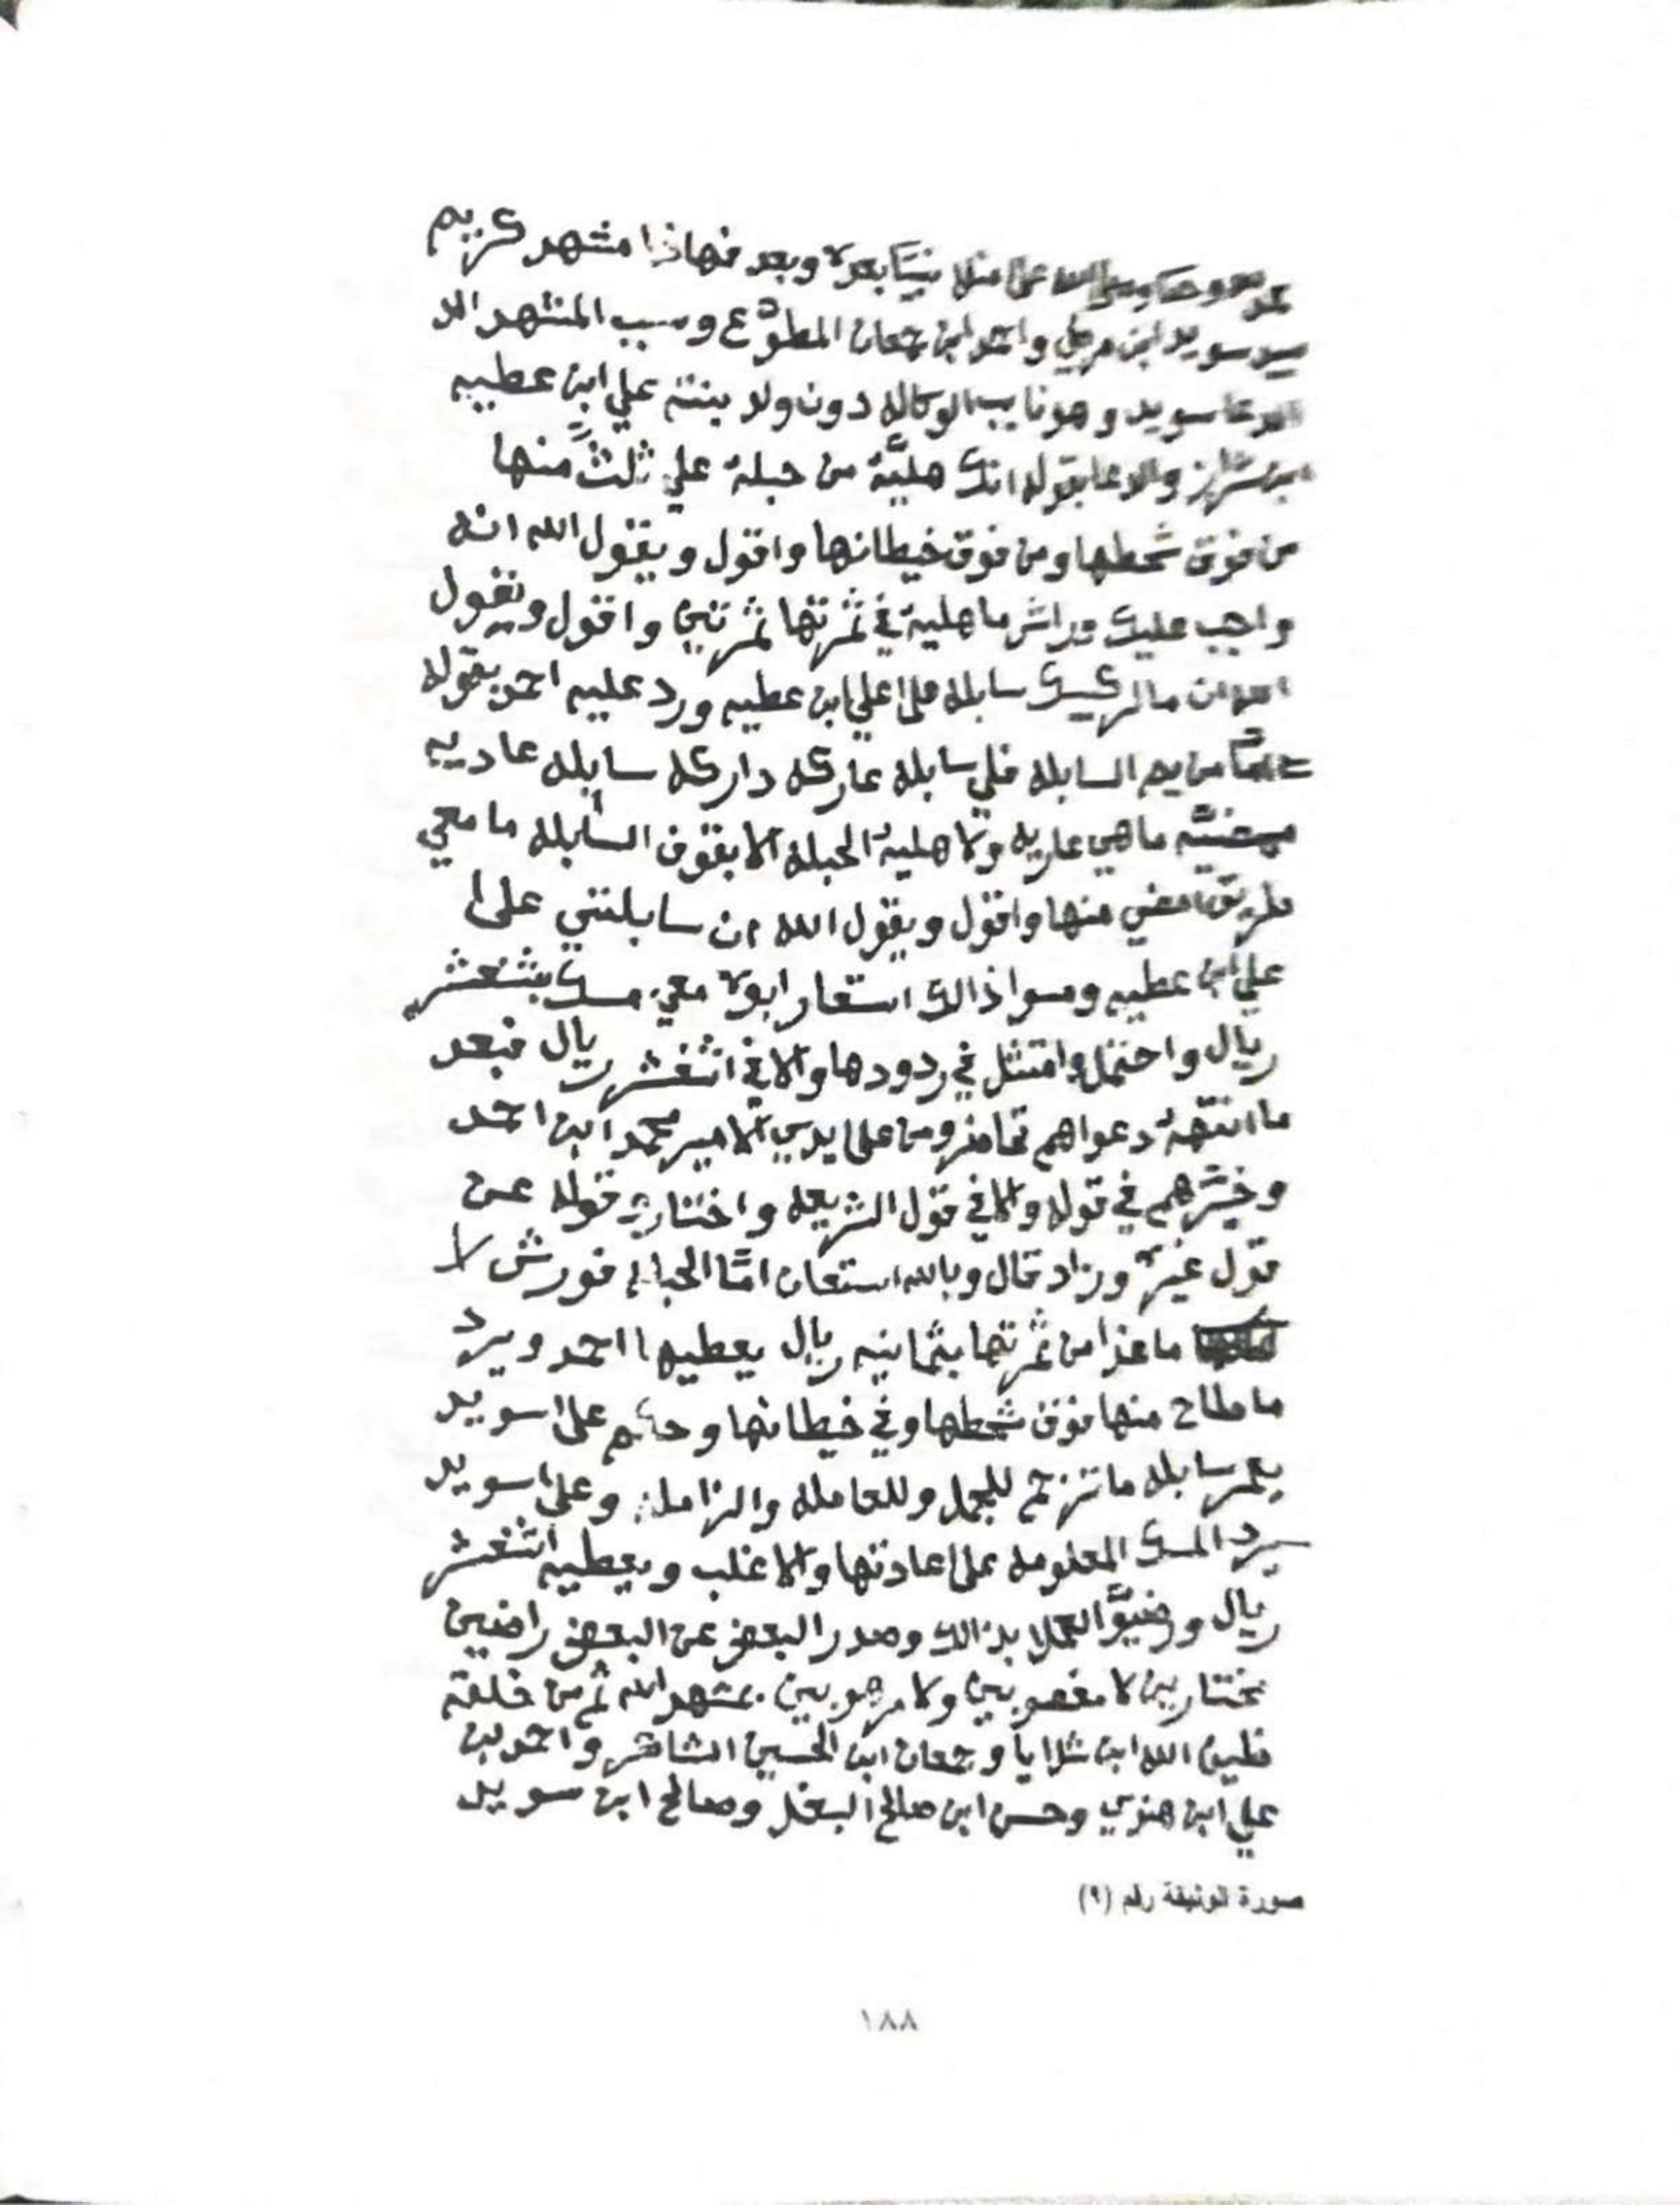 الله على من لا نبيًا بعده وبعد فهاذا مشهد كريم
سويد ابن واحمد ابن جمعان المطوّع وسبب المشهد الا
سويد وهو نايب الوكاله دون ولد بنته علي ابن عطيه
والادعا بقوله انك هليّة من حبلة علي ثلثً منها
من فوق شحطها ومن فوق خيطانها واقول ويقول الله انه
واجب عليك وراش ما هلية في ثمرتها ثمرتين واقول ويقول
ان مالك سابله على علي ابن عطيه ورد عليه احمد بقوله
من يم السابله فلي سابله عاركه داركه سابله عاديه
ما هي عاريه ولا هلية الحبله الا بقوف السابله ما معي
طريق امضي منها واقول ويقول الله ان سابلتي على
علي ابن عطيه وسوا ذالك استعار ابوه معي مسك بثنعشر
ريال واحتمل وامتثل في ردودها والا في اثنعشر ريال فبعد
ما انتهة دعواهم تحامزو من على يدي الامير محمد ابن احمد
وخيّرهم في قوله والا في قول الشريعه واختارو قوله عن
قول غيره وزاد قال وبالله استعان امّا الحبله فورش لا
ما عدا من ثمرتها بثمانيه ريال يعطيها احمد ويرد
ما طاح منها فوق شحطها وفي خيطانها وحكم على سويد
بممر سابله ما تزحم للجمل وللعامله والزامله وعلى سويد
يرد المسك المعلومه على عادتها والا غلب ويعطيه اثنعشر
ريال ورضيوّ العملا بذالك وصدر البعض عن البعض راضيين
مختارين لا مغصوبين ولا مرهوبين بمشهد الله ثم من خلقه
ظيف الله ابن شلايا وجمعان ابن الحسين الشاعر واحمد بن
علي ابن هندي وحسن ابن صالح البغل وصالح ابن سويد
صورة الوثيقة رقم (٩)
١٨٨